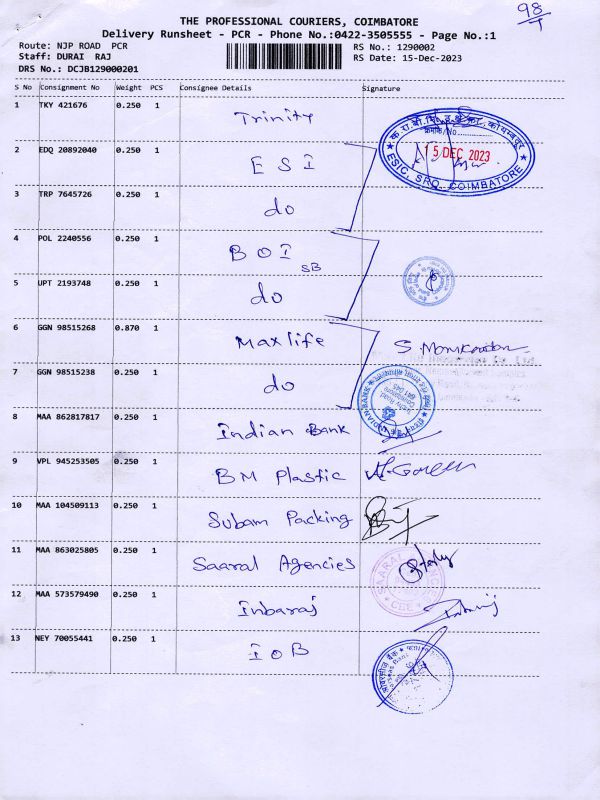 98/1
THE PROFESSIONAL COURIERS, COIMBATORE
Delivery Runsheet - PCR - Phone No.:0422-3505555 - Page No.:1
Route: NJP ROAD PCR RS No.: 1290002
Staff: DURAI RAJ RS Date: 15-Dec-2023
DRS No.: DCJB129000201
S No Consignment No Weight PCS Consignee Details Signature
1 TKY 421676 0.250 1 Trinity
क.रा.बी.नि. कोयम्बतूर
क्रमांक/No.
15 DEC 2023
ESIC, SRO, COIMBATORE
2 EDQ 20892040 0.250 1 ESI
3 TRP 7645726 0.250 1 do
4 POL 2240556 0.250 1 BOI SB
5 UPT 2193748 0.250 1 do
6 GGN 98515268 0.870 1 Maxlife
7 GGN 98515238 0.250 1 do
INDIAN BANK
Trichy Road
Coimbatore
641 045
8 MAA 862817817 0.250 1 Indian Bank
9 VPL 945253505 0.250 1 BM Plastic
10 MAA 104509113 0.250 1 Subam Packing
11 MAA 863025805 0.250 1 Saaral Agencies
SAARAL
CBE
12 MAA 573579490 0.250 1 Inbaraj
13 NEY 70055441 0.250 1 IOB
ओवरसीज बैंक